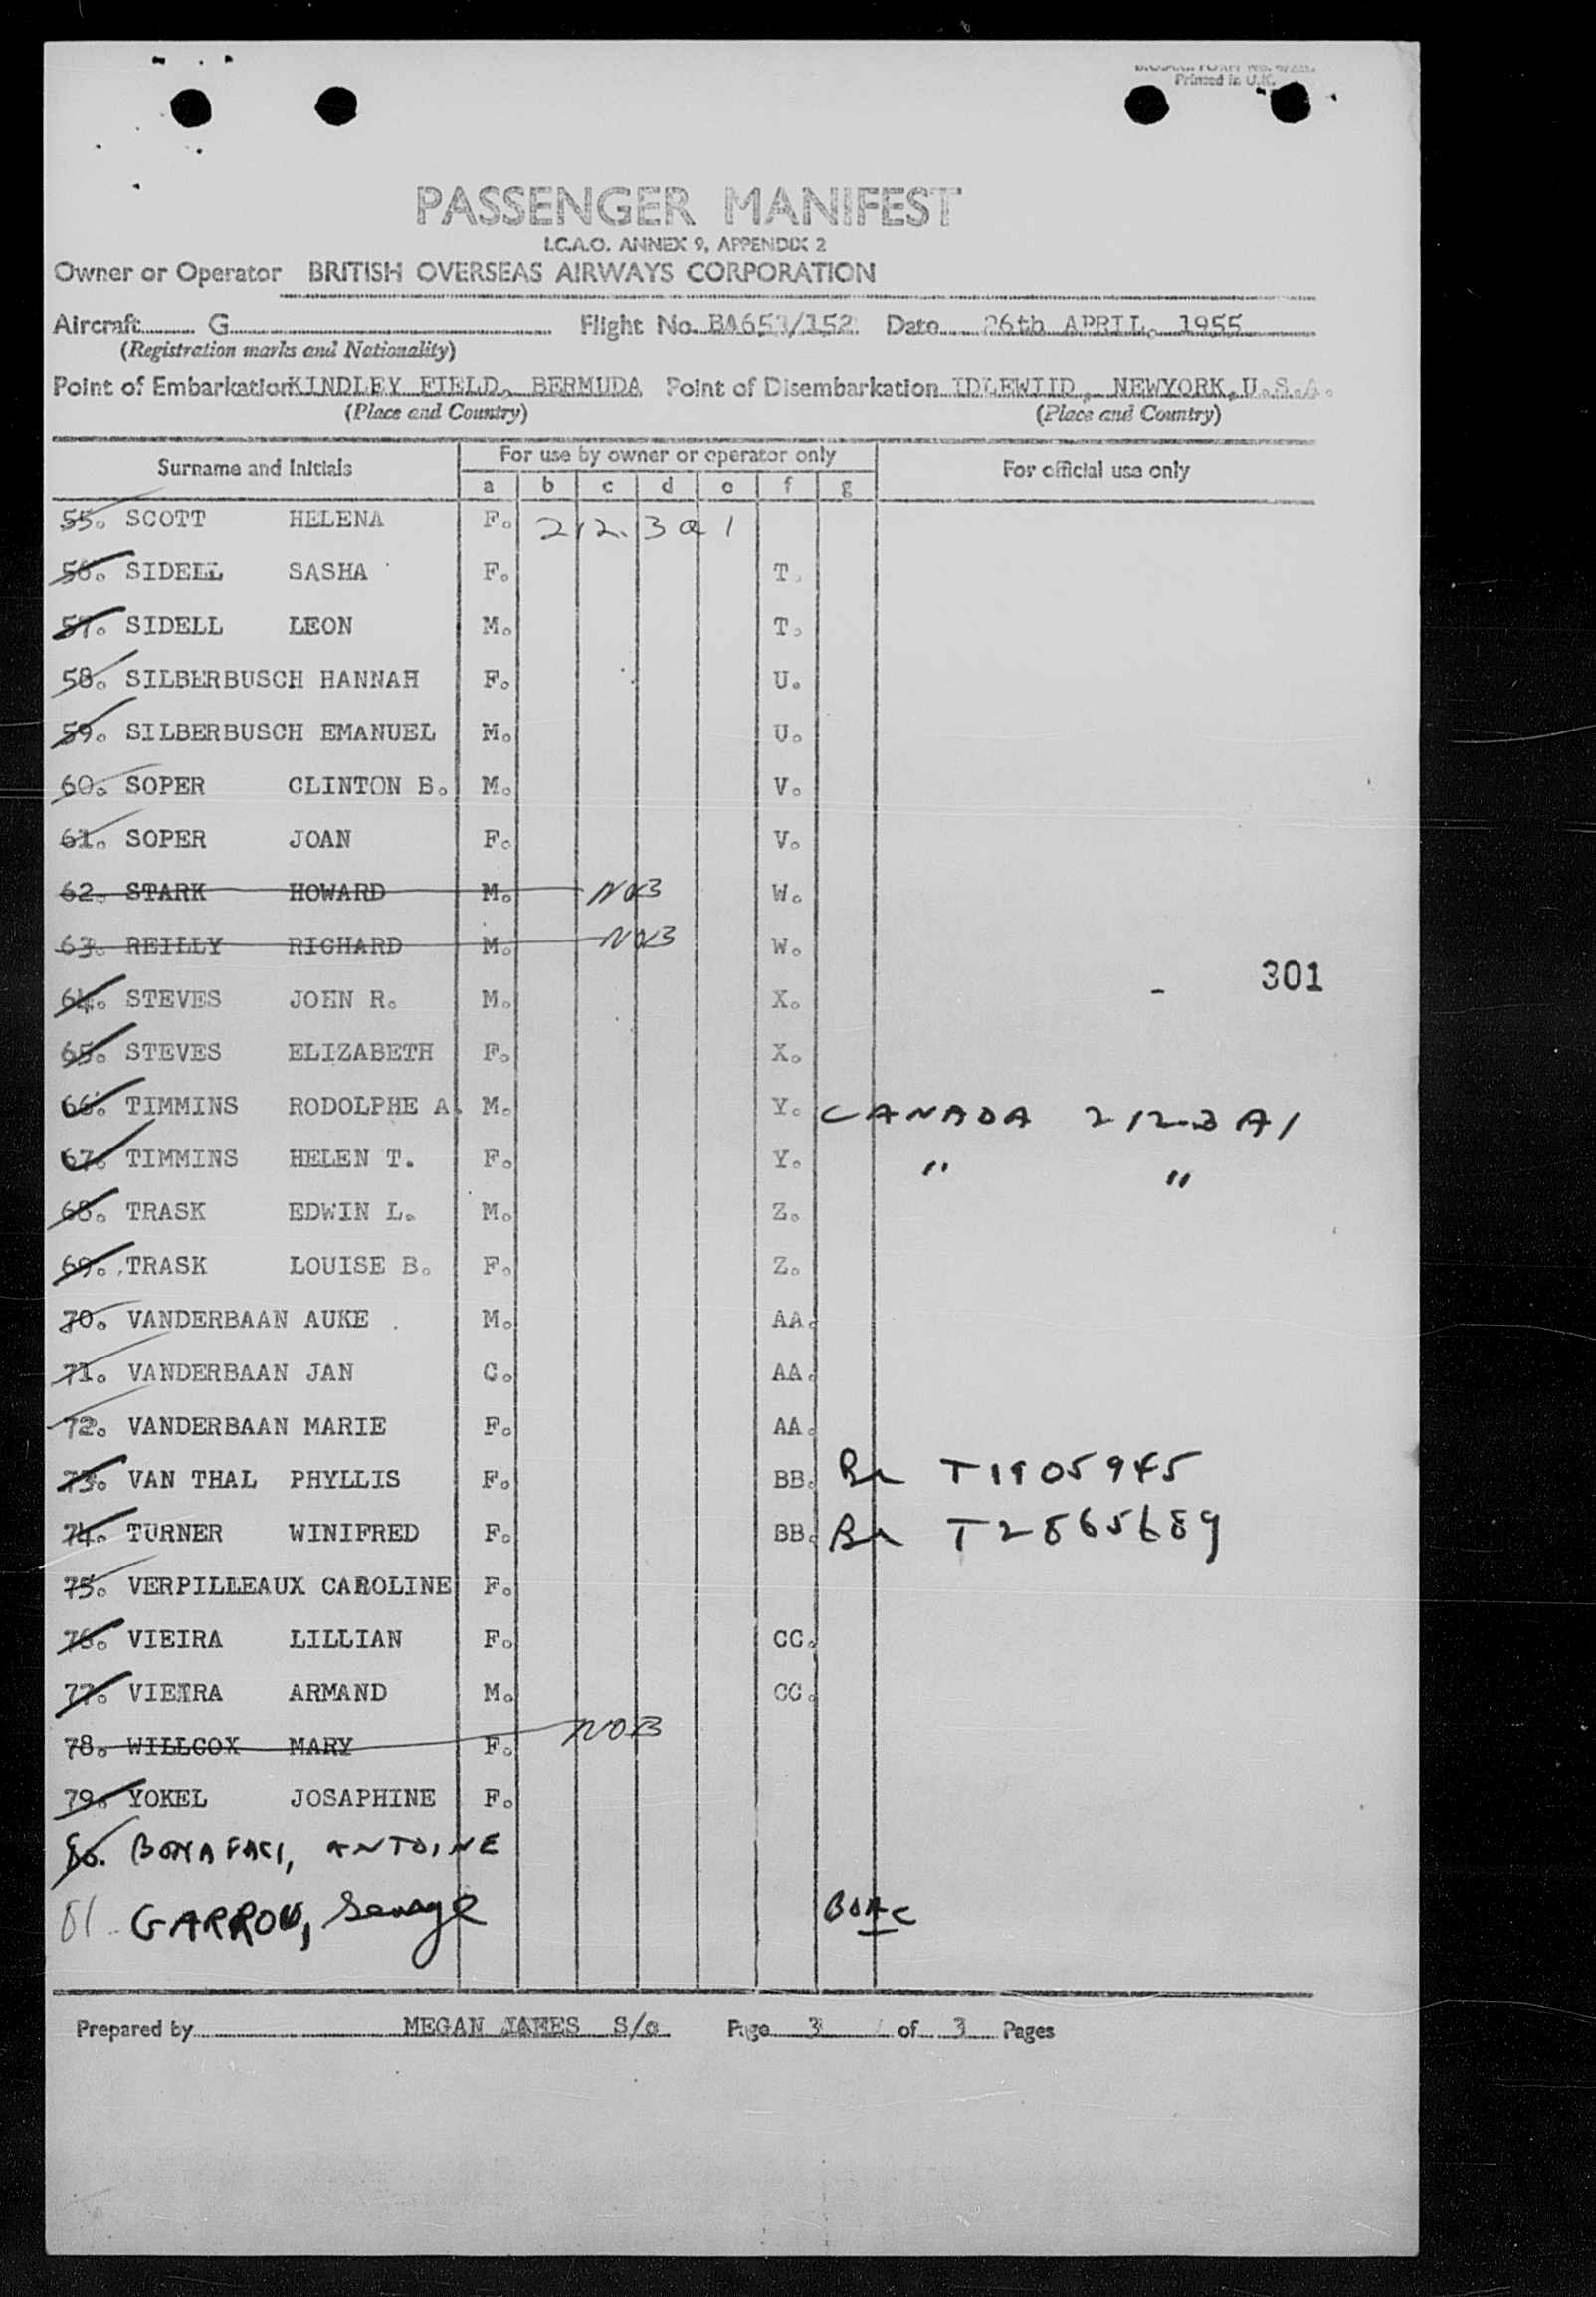 Printed in U.K.
PASSENGER MANIFEST
I.C.A.O. ANNEX 9, APPENDIX 2
Owner or Operator BRITISH OVERSEAS AIRWAYS CORPORATION
Aircraft G Flight No. BA653/152 Date 26th APRIL, 1955
(Registration marks and Nationality)
Point of Embarkation KINDLEY FIELD, BERMUDA Point of Disembarkation IDLEWIID, NEWYORK, U.S.A.
(Place and Country) (Place and Country)
Surname and Initials For use by owner or operator only For official use only
a b c d e f g
55. SCOTT HELENA F. 212.3a1
56. SIDELL SASHA F. T.
57. SIDELL LEON M. T.
58. SILBERBUSCH HANNAH F. U.
59. SILBERBUSCH EMANUEL M. U.
60. SOPER CLINTON B. M. V.
61. SOPER JOAN F. V.
62. STARK HOWARD M. NOB W.
63. REILLY RICHARD M. NOB W.
301
64. STEVES JOHN R. M. X.
65. STEVES ELIZABETH F. X.
66. TIMMINS RODOLPHE A. M. Y. CANADA 212.3A1
67. TIMMINS HELEN T. F. Y. " "
68. TRASK EDWIN L. M. Z.
69. TRASK LOUISE B. F. Z.
70. VANDERBAAN AUKE M. AA.
71. VANDERBAAN JAN C. AA.
72. VANDERBAAN MARIE F. AA.
73. VAN THAL PHYLLIS F. BB. Br T1905945
74. TURNER WINIFRED F. BB. Br T2865689
75. VERPILLEAUX CAROLINE F.
76. VIEIRA LILLIAN F. CC.
77. VIEIRA ARMAND M. CC.
78. WILLCOX MARY F. NOB
79. YOKEL JOSAPHINE F.
80. ANTOINE
81 GARROW, Savage BOAC
Prepared by MEGAN JAMES S/c Page 3 of 3 Pages